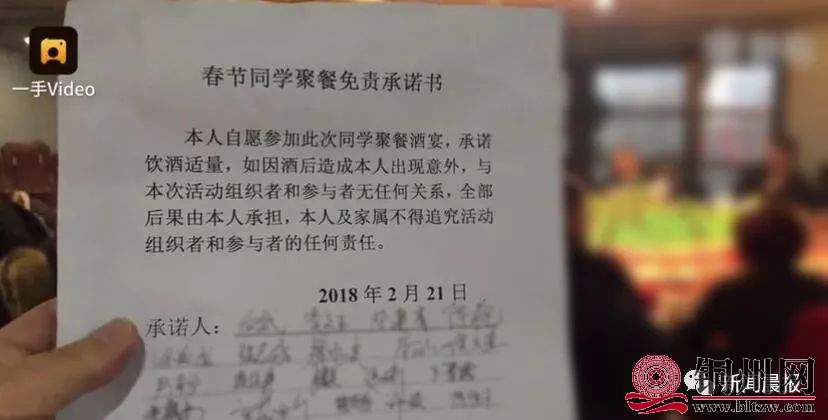 一手Video
春节同学聚餐免责承诺书
本人自愿参加此次同学聚餐酒宴，承诺
饮酒适量，如因酒后造成本人出现意外，与
本次活动组织者和参与者无任何关系，全部
后果由本人承担，本人及家属不得追究活动
组织者和参与者的任何责任。
2018 年 2 月 21 日
承诺人：
新闻晨报
铜州网
www.bltzw.com